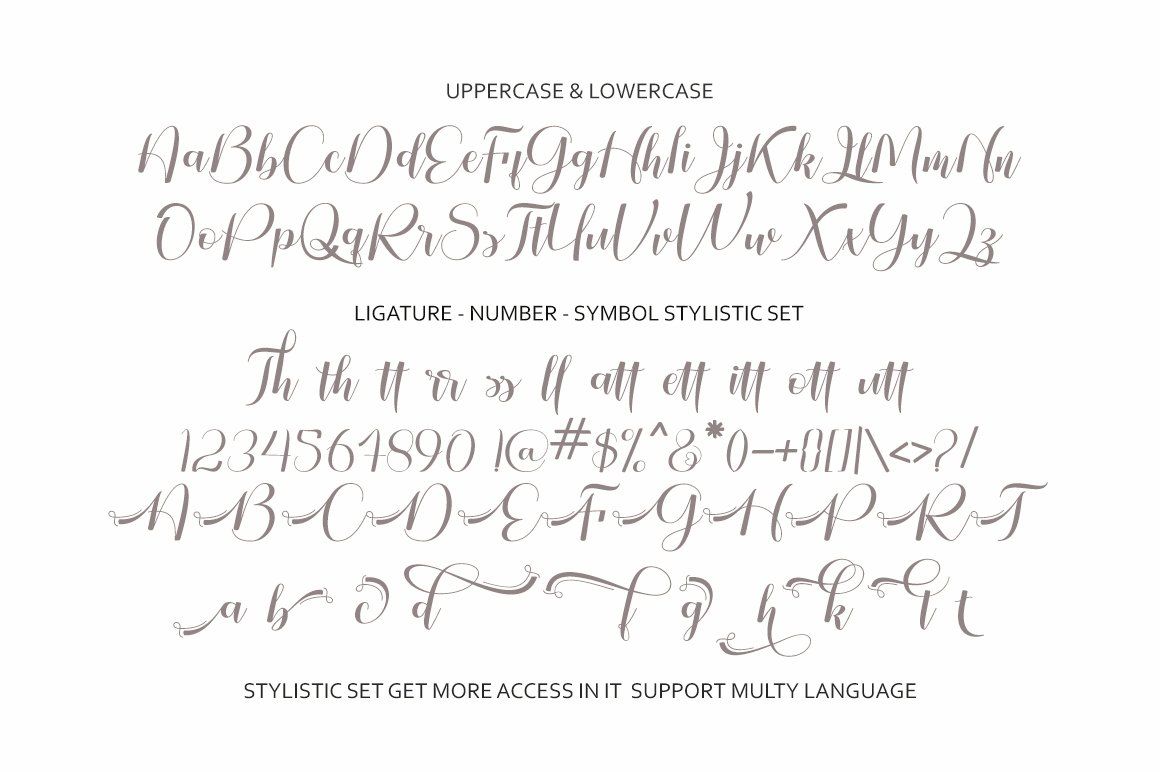 UPPERCASE & LOWERCASE
AaBbCcDdEeFfGgHhIiJjKkLlMmNn
OoPpQqRrSsTtUuVvWwXxYyZz
LIGATURE - NUMBER - SYMBOL STYLISTIC SET
Th th tt rr ss ll att ett itt ott utt
1234567890 !@#$%^&*()-+{}[]|\<>?/
A B C D E F G H P R T
a b c d f g h k l t
STYLISTIC SET GET MORE ACCESS IN IT SUPPORT MULTY LANGUAGE